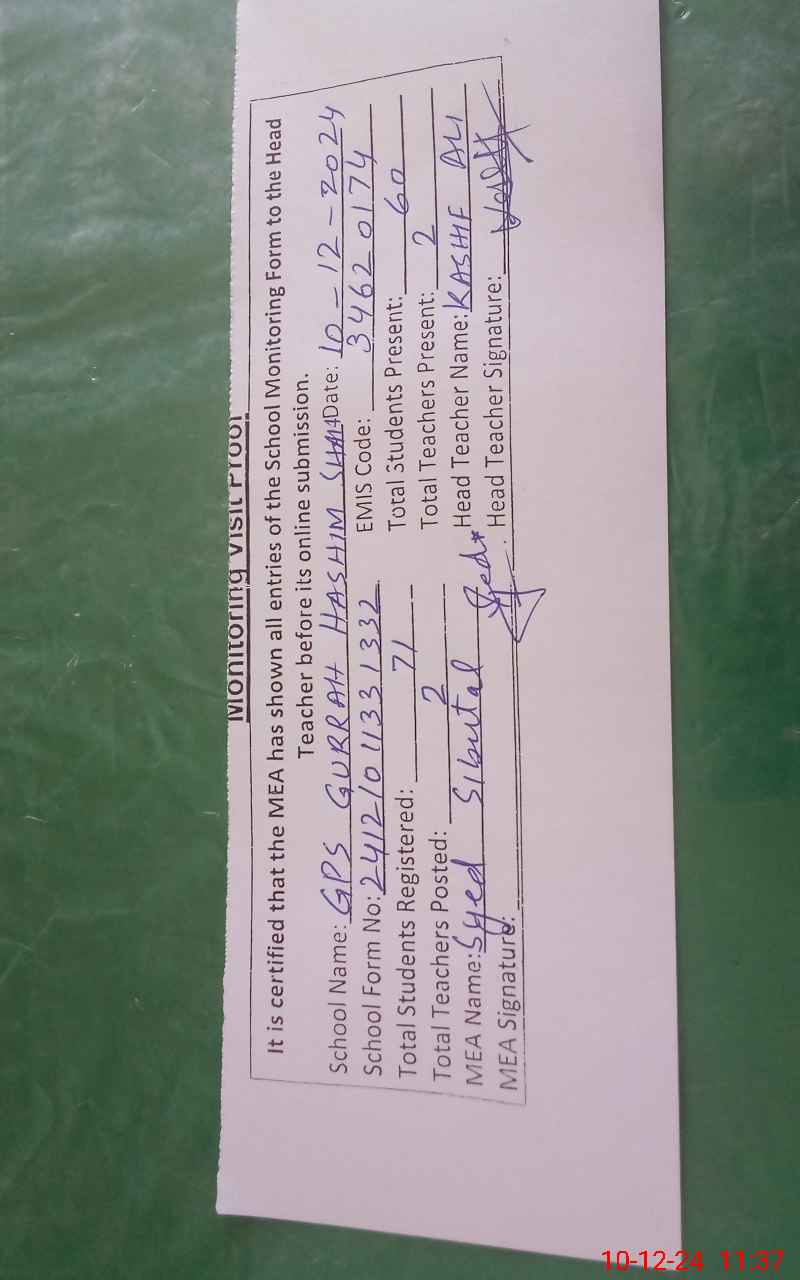 Monitoring Visit Proof
It is certified that the MEA has shown all entries of the School Monitoring Form to the Head
Teacher before its online submission.
School Name: GPS GURRAH HASHIM SHAH Date: 10-12-2024
School Form No: 2412101133 1332 EMIS Code: 34620174
Total Students Registered: 71 Total Students Present: 60
Total Teachers Posted: 2 Total Teachers Present: 2
MEA Name: Syed Sibutal Head Teacher Name: KASHIF ALI
MEA Signature: Head Teacher Signature:
10-12-24 11:37